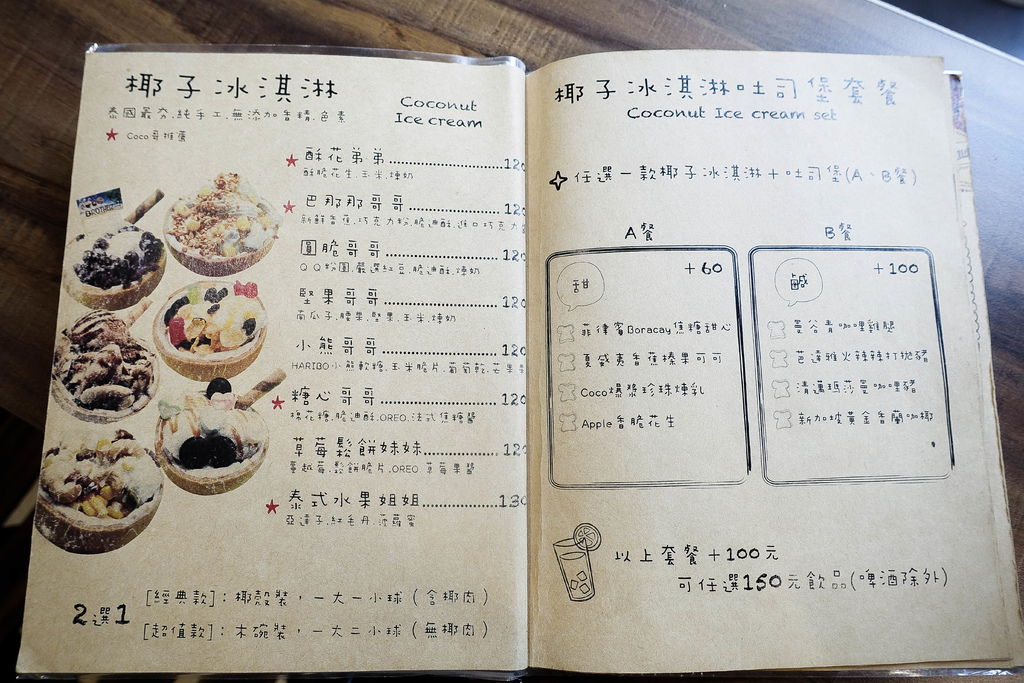 椰子冰淇淋
Coconut
Ice cream
泰國最夯,純手工,無添加香精,色素
Coco哥推薦
酥花弟弟.....................120
酥脆花生.玉米.煉奶
巴那那哥哥.....................120
新鮮香蕉.巧克力粉.脆迪酥.進口巧克力
圓脆哥哥.....................120
QQ粉圓.嚴選紅豆.脆迪酥.煉奶
堅果哥哥.....................120
南瓜子.腰果.堅果.玉米.煉奶
小熊哥哥.....................120
HARIBO小熊軟糖.玉米脆片.葡萄乾.芒果
糖心哥哥.....................120
棉花糖.脆迪酥.OREO.法式焦糖醬
草莓鬆餅妹妹.....................120
蔓越莓.鬆餅脆片.OREO 草莓果醬
泰式水果姐姐.....................130
亞達子.紅毛丹.菠蘿蜜
2選1
[經典款]：椰殼裝，一大一小球(含椰肉)
[超值款]：木碗裝，一大二小球(無椰肉)
椰子冰淇淋吐司堡套餐
Coconut Ice cream set
任選一款椰子冰淇淋+吐司堡(A、B餐)
A餐
甜
+60
菲律賓Boracay焦糖甜心
夏威夷香蕉榛果可可
Coco爆漿珍珠煉乳
Apple香脆花生
B餐
鹹
+100
曼谷青咖哩雞腿
芭達雅火辣辣打拋豬
清邁瑪莎曼咖哩豬
新加坡黃金香蘭咖椰
以上套餐+100元
可任選150元飲品(啤酒除外)